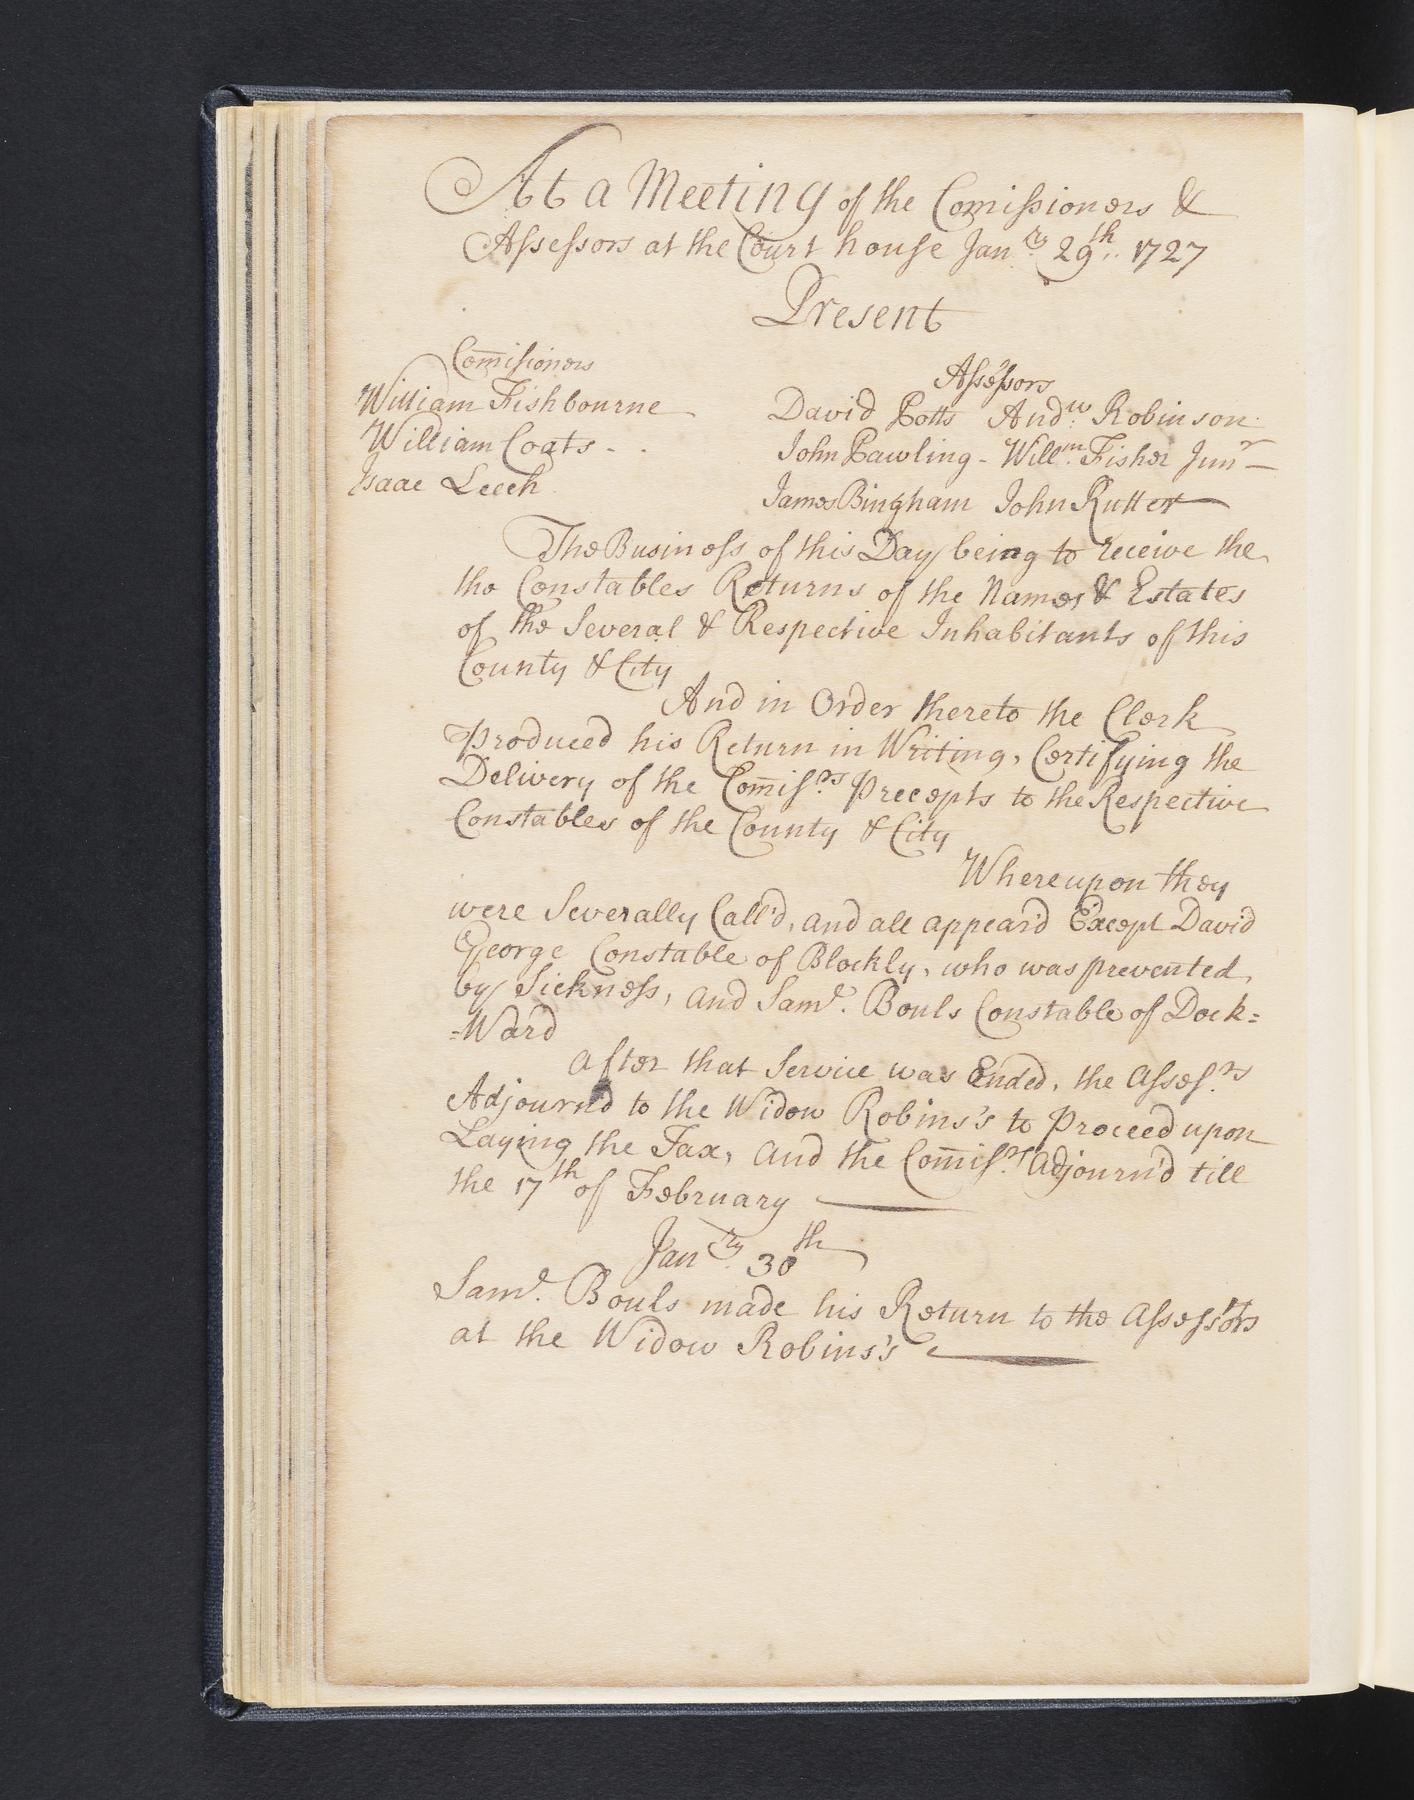 At a Meeting of the Comissioners &
Assessors at the Court house Janry 29th 1727
Present
Comissioners
William Fishbourne
William Coats - .
Isaac Leech
Assessors
David Potts Andw Robinson
John Pawling - Willm Fisher Junr
James Bingham John Rutter
The Business of this Day being to receive the
the Constables Returns of the Names & Estates
of the Several & Respective Inhabitants of this
County & City
And in Order thereto the Clerk
Produced his Return in Writing, Certifying the
Delivery of the Comissrs Precepts to the Respective
Constables of the County & City
Whereupon they
were Severally Call'd, and all appear'd Except David
George Constable of Blockly, who was prevented
by Sickness, and Saml. Bouls Constable of Dock=
=Ward
after that Service was Ended, the Assessrs
Adjourn'd to the Widow Robins's to Proceed upon
Laying the Tax, and the Comissrs adjourn'd till
the 17th of February
Janry 30th
Saml. Bouls made his Return to the Assessors
at the Widow Robins's